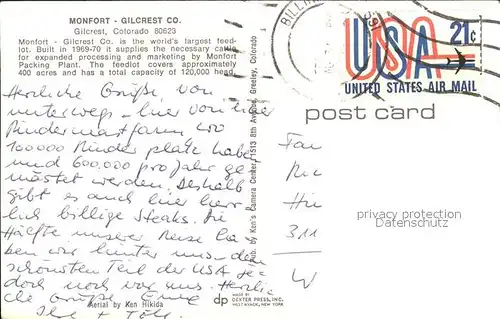 MONFORT - GILCREST CO.
Gilcrest, Colorado 80623
Monfort - Gilcrest Co. is the world's largest feed-
lot. Built in 1969-70 it supplies the necessary cattle
for expanded processing and marketing by Monfort
Packing Plant. The feedlot covers approximately
400 acres and has a total capacity of 120,000 head.
Herzliche Grüße, von
unterwegs – hier von einer
Rindermastfarm wo
100000 Rinder platz haben
und 600.000 pro Jahr ge-
mästet werden. Deshalb
gibt es auch hier herr-
lich billige Steaks. Die
Hälfte unserer Reise ha-
ben wir hinter uns – den
schönsten Teil der USA je-
doch noch vor uns. Herzli-
che Grüße Eure
Aerial by Ken Hikida
Pub. by Ken's Camera Center, 1513 8th Avenue, Greeley, Colorado
dp
MADE BY
DEXTER PRESS, INC.
WEST NYACK, NEW YORK
BILLIN
USA
21c
UNITED STATES AIR MAIL
post card
311
W
privacy protection
Datenschutz